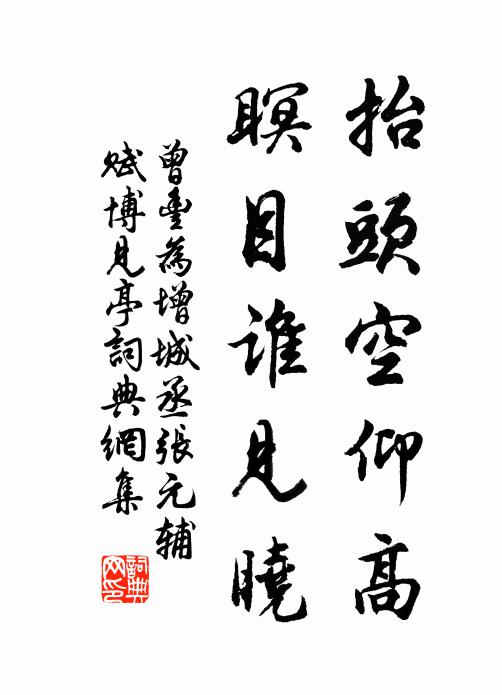 抬頭空仰高
瞑目誰見曉
曾豊為增城丞張元輔
賦博見亭詞典網集
詞典
网印